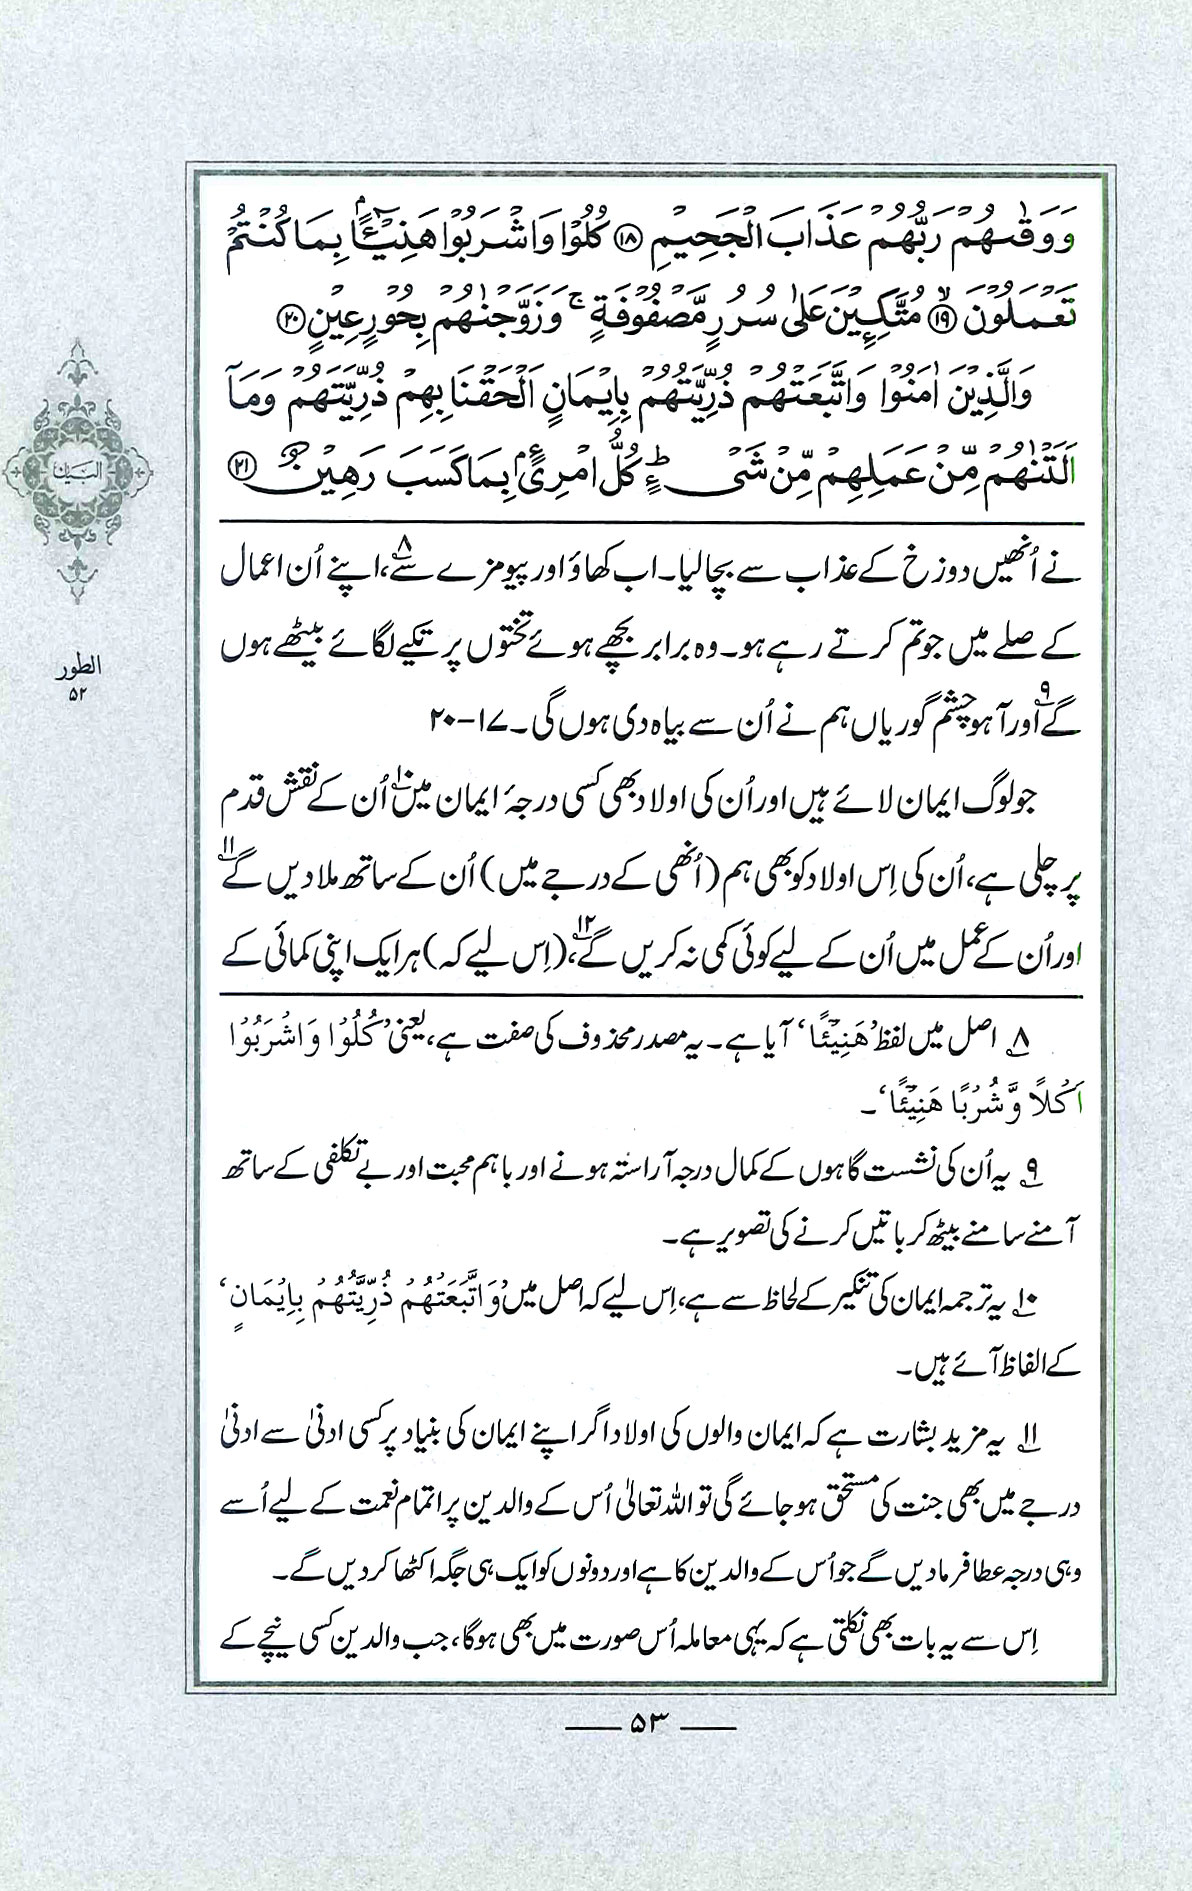 وَوَقٰىهُمْ رَبُّهُمْ عَذَابَ الْجَحِيْمِ ﴿۱۸﴾ كُلُوْا وَاشْرَبُوْا هَنِيْٓـًٔاۢ بِمَا كُنْتُمْ
تَعْمَلُوْنَ ﴿۱۹﴾ مُتَّكِـِٕيْنَ عَلٰى سُرُرٍ مَّصْفُوْفَةٍ ۚ وَزَوَّجْنٰهُمْ بِحُوْرٍ عِيْنٍ ﴿۲۰﴾
وَالَّذِيْنَ اٰمَنُوْا وَاتَّبَعَتْهُمْ ذُرِّيَّتُهُمْ بِاِيْمَانٍ اَلْحَقْنَا بِهِمْ ذُرِّيَّتَهُمْ وَمَآ
اَلَتْنٰهُمْ مِّنْ عَمَلِهِمْ مِّنْ شَىْءٍ ؕ كُلُّ امْرِئٍۢ بِمَا كَسَبَ رَهِيْنٌ ﴿۲۱﴾
نے اُنھیں دوزخ کے عذاب سے بچا لیا۔ اب کھاؤ اور پیو مزے سے۸، اپنے اُن اعمال
کے صلے میں جو تم کرتے رہے ہو۔ وہ برابر بچھے ہوئے تختوں پر تکیے لگائے بیٹھے ہوں
گے۹ اور آہو چشم گوریاں ہم نے اُن سے بیاہ دی ہوں گی۔ ۱۷-۲۰
جو لوگ ایمان لائے ہیں اور اُن کی اولاد بھی کسی درجۂ ایمان میں۱۰ اُن کے نقش قدم
پر چلی ہے، اُن کی اِس اولاد کو بھی ہم (اُنھی کے درجے میں) اُن کے ساتھ ملا دیں گے۱۱
اور اُن کے عمل میں اُن کے لیے کوئی کمی نہ کریں گے۱۲، (اِس لیے کہ) ہر ایک اپنی کمائی کے
۸؂ اصل میں لفظ ’هَنِيْٓئًا‘ آیا ہے۔ یہ مصدر محذوف کی صفت ہے، یعنی ’كُلُوْا وَاشْرَبُوْا
اَكْلًا وَّشُرْبًا هَنِيْٓئًا‘۔
۹؂ یہ اُن کی نشست گاہوں کے کمال درجہ آراستہ ہونے اور باہم محبت اور بے تکلفی کے ساتھ
آمنے سامنے بیٹھ کر باتیں کرنے کی تصویر ہے۔
۱۰؂ یہ ترجمہ ایمان کی تنکیر کے لحاظ سے ہے، اِس لیے کہ اصل میں ’وَاتَّبَعَتْهُمْ ذُرِّيَّتُهُمْ بِاِيْمَانٍ‘
کے الفاظ آئے ہیں۔
۱۱؂ یہ مزید بشارت ہے کہ ایمان والوں کی اولاد اگر اپنے ایمان کی بنیاد پر کسی ادنیٰ سے ادنیٰ
درجے میں بھی جنت کی مستحق ہو جائے گی تو اللہ تعالیٰ اُس کے والدین پر اتمام نعمت کے لیے اُسے
وہی درجہ عطا فرما دیں گے جو اُس کے والدین کا ہے اور دونوں کو ایک ہی جگہ اکٹھا کر دیں گے۔
اِس سے یہ بات بھی نکلتی ہے کہ یہی معاملہ اُس صورت میں بھی ہو گا، جب والدین کسی نیچے کے
البیان
الطور
۵۲
۵۳